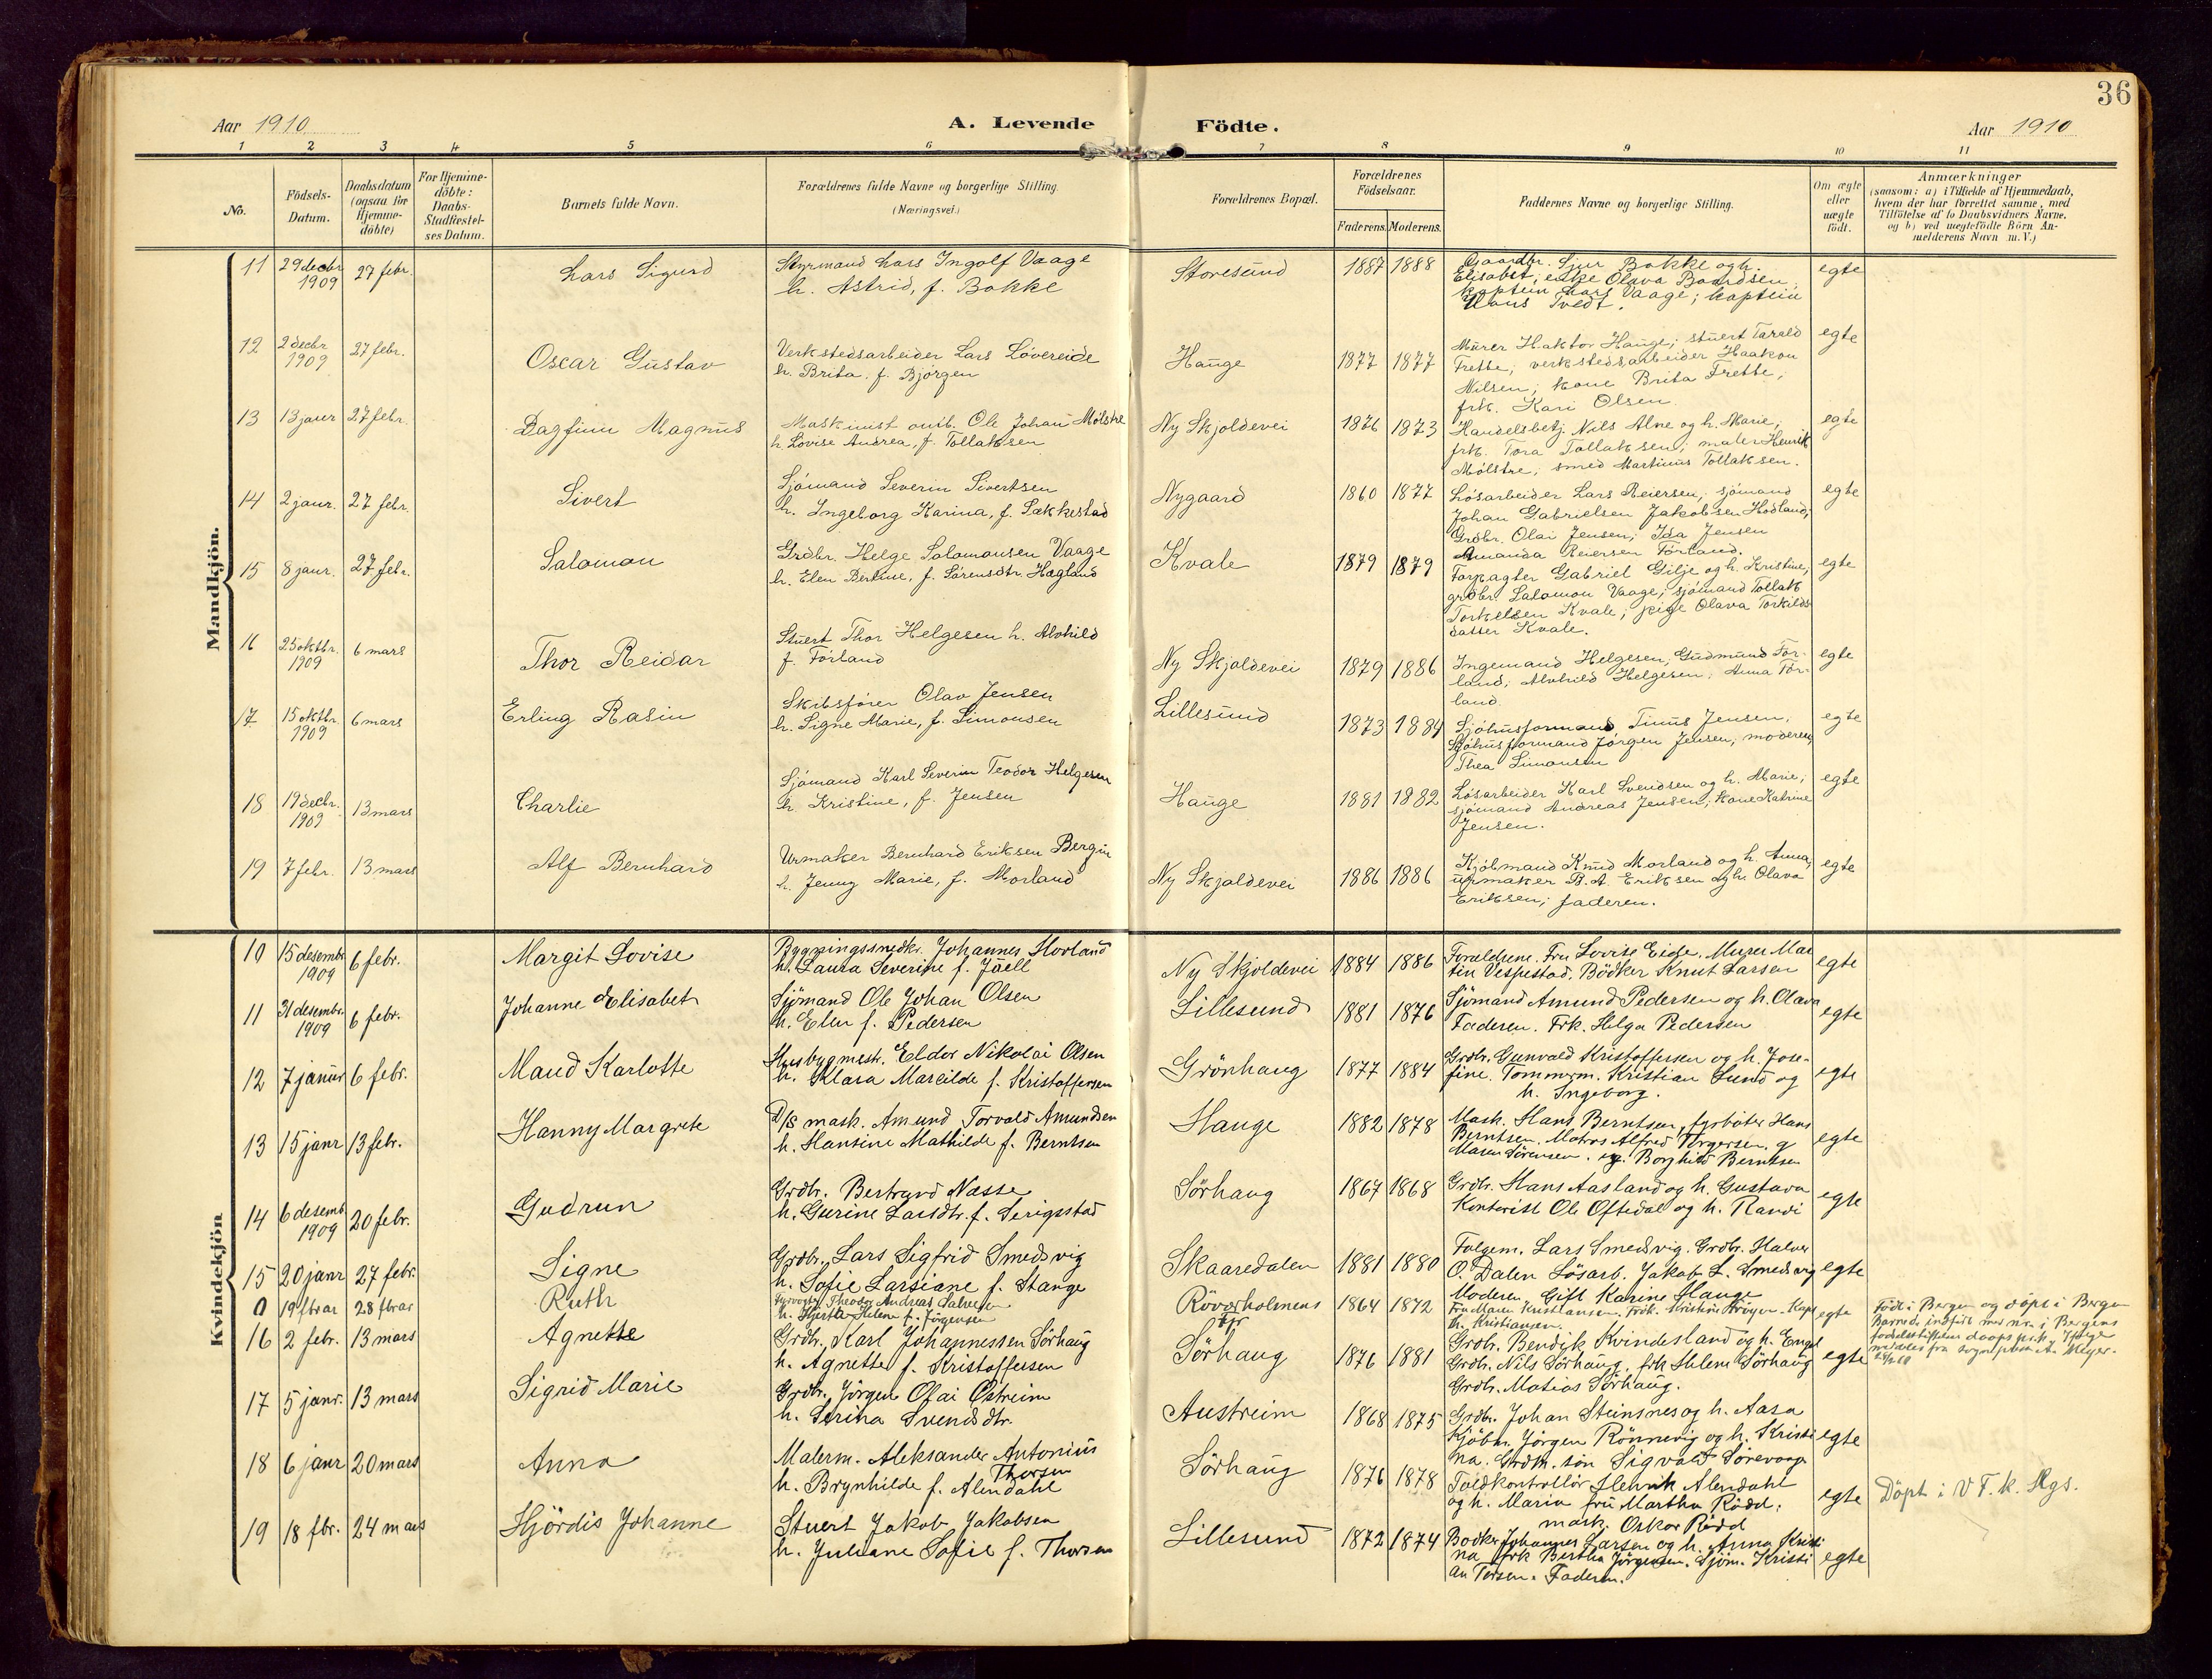 36
Aar 1910
A. Levende Födte.
Aar 1910
1 2 3 4 5 6 7 8 9 10 11
No.
Födsels-Datum.
Daabsdatum (ogsaa for Hjemme-döbte)
For Hjemme-döbte: Daabs-Stadfæstel-ses Datum.
Barnets fulde Navn.
Forældrenes fulde Navne og borgerlige Stilling.
(Næringsvei.)
Forældrenes Bopæl.
Forældrenes Födselsaar.
Faderens. Moderens.
Faddernes Navne og borgerlige Stilling.
Om ægte eller uægte födt.
Anmærkninger
(saasom: a) i Tilfælde af Hjemmedaab,
hvem der har forrettet samme, med
Tilföielse af to Daabsvidners Navne.
og b) ved uægtefödte Börn An-
melderens Navn m. V.)
Mandkjön.
11 29 decbr 1909 27 febr. Lars Sigurd
Styrmand Lars Ingolf Vaage
h. Astrid, f. Bakke
Storesund 1887 1888
Gaardbr. Sjur Bakke og h.
Elisabet; enke Olava Baardsen;
kaptein Lars Vaage; kaptein
Hans Tvedt.
egte
12 2 decbr 1909 27 febr. Oscar Gustav
Verkstedsarbeider Lars Lövereide
h. Brita, f. Björgen
Hauge 1877 1877
Murer Haktor Hauge; stuert Tarald
Frette; verkstedsarbeider Haakon
Nilsen; kone Brita Frette;
frk. Kari Olsen.
egte
13 13 janr 27 febr. Dagfinn Magnus
Maskinist Ole Johan Mölstre
h. Lovise Andrea, f. Tollaksen
Ny Skjoldevei 1876 1873
Handelsbetj. Nils Alne og h. Marie;
frk. Tora Tollaksen; maler Henrik
Mölstre; smed Martinus Tollaksen.
egte
14 2 janr. 27 febr. Sivert
Sjömand Severin Sivertsen
h. Ingeborg Karina, f. Sækkestad
Nygaard 1860 1877
Lösarbeider Lars Reiersen; sjömand
Johan Gabrielsen Jakobsen Hodland;
Grdbr. Olai Jensen; Ida Jensen
Amanda Reiersen Förland.
egte
15 8 janr. 27 febr. Salomon
Grdbr. Helge Salomonsen Vaage
h. Elen Bertine, f. Sörensdtr. Hagland
Kvale 1879 1879
Forpagter Gabriel Gilje og h. Kristine;
grdbr. Salomon Vaage; sjömand Tollak
Torkelsen Kvale; pige Olava Torkilds
datter Kvale.
egte
16 25 oktbr. 1909 6 mars Thor Reidar
Stuert Thor Helgesen h. Alvhild
f. Förland
Ny Skjoldevei 1879 1886
Ingemand Helgesen; Gudmund För-
land; Alvhild Helgesen; Anna För-
land.
egte
17. 15 oktbr. 1909 6 mars Erling Rasin
Skibsförer Olav Jensen
h. Signe Marie, f. Simonsen
Lillesund 1873 1884
Sjöhusformand Tinus Jensen;
Sjöhusformand Jörgen Jensen; moderen;
Thea Simonsen
egte
18 19 decbr. 1909 13 mars Charlie
Sjömand Karl Severin Teodor Helgesen
h. Kristine, f. Jensen
Hauge 1881 1882
Lösarbeider Karl Svendsen og h. Marie;
sjömand Andreas Jensen; kone Katrine
Jensen.
egte
19 7 febr. 13 mars Alf Bernhard
Urmaker Bernhard Eriksen Bergin
h. Jenny Marie, f. Morland
Ny Skjoldevei 1886 1886
Kjöbmand Knud Morland og h. Anna;
urmaker B. A. Eriksen og h. Olava
Eriksen; faderen.
egte
Kvindekjön
10 15 desembr 1909 6 febr. Margit Lovise
Bygningssnedkr. Johannes Morland
h. Laura Severine f. Juell
Ny Skjoldevei 1884 1886
Foreldrene. Fru Lovise Eide. Murer Mar
tin Vespestad. Bödker Knut Larsen
egte
11 31 desembr. 1909 6 febr. Johanne Elisabet
Sjömand Ole Johan Olsen
h. Elen f. Pedersen
Lillesund 1881 1876
Sjömand Amund Pedersen og h. Olava
Faderen. Frk. Helga Pedersen
egte
12 7 januar 6 febr. Maud Karlotte
Husbygmestr. Eldor Nikolai Olsen
h. Klara Marcilde f. Kristoffersen
Grönhaug 1877 1884
Grdbr. Gunvald Kristoffersen og h. Jose-
fine. Tommerm. Kristian Lund og
h. Ingeborg.
egte
13 15 janr 13 febr. Hanny Margrete
D/S mask. Amund Torvald Amundsen
h. Hansine Mathilde f. Berntsen
Hauge 1882 1878
Mask. Hans Berntsen, fyrböter Hans
Berntsen. Matros Alfred Torgersen. g
Maren Sörensen. Borghild Berntsen
egte
14 6 desemb. 1909 20 febr. Gudrun
Grdbr. Bertrand Nasse
h. Gurine Larsdtr. f. Serigstad
Sörhaug 1867 1868
Grdbr. Hans Aasland og h. Gustava
Kontorist Ole Oftedal og h. Randi
egte
15 20 janr 27 febr. Signe
Grdbr. Lars Sigfrid Smedsvig
h. Sofie Larsiane f. Stange
Skaaredalen 1881 1880
Folgem. Lars Smedsvig. Grdbr. Halvor
O. Dalen Lösarb. Jakob L. Smedsvig
Moderen. Gift Karine Stange
egte
0 19 fbrar 28 fbrar Ruth
Fyrvogter Theodor Andreas Salvesen
h. Hjertha Helene f. Jörgensen
Röverholmens fyr 1864 1872
Fru Maren Kristiansen. Frök. Kristine Kröyer. Kapt
Th. Kristiansen.
egte
Födt i Bergen og döpt i Bergen
16 2 febr. 13 mars Agnette
Grdbr. Karl Johannessen Sörhaug
h. Agnette f. Kristoffersen
Sörhaug 1876 1881
Grdbr. Bendik Kvindesland og h. Engel
Grdbr. Nils Sörhaug. frk Helene Sörhaug
Grdbr. Matias Sörhaug.
egte
17 5 janr. 13 mars Sigrid Marie
Grdbr. Jörgen Olai Østreim
h. Serina Svendsdtr.
Austreim 1868 1875
Grdbr. Johan Steinsnes og h. Aasa
Kjöbm. Jörgen Rönnevig og h. Kristi
na. Grdbr. sön Sigvald Sörevaag
egte
18 6 janr 20 mars Anna
Malerm. Aleksander Antonius Thorsen
h. Brynhilde f. Alendahl
Sörhaug 1876 1878
Toldkontrollör Henrik Alendahl
og h. Maria fru Martha Rödd.
mask. Oskar Rödd
egte
Döpt i V F. k. Hgs.
19 18 fbr. 24 mars Hjördis Johanne
Stuert Jakob Jakobsen
h. Juliane Sofie f. Thorsen
Lillesund 1872 1874
Bödker Johannes Larsen og h. Anna Kristi
na frk Bertha Jörgensen. Sjöm. Kristi
an Torsen. Faderen.
egte